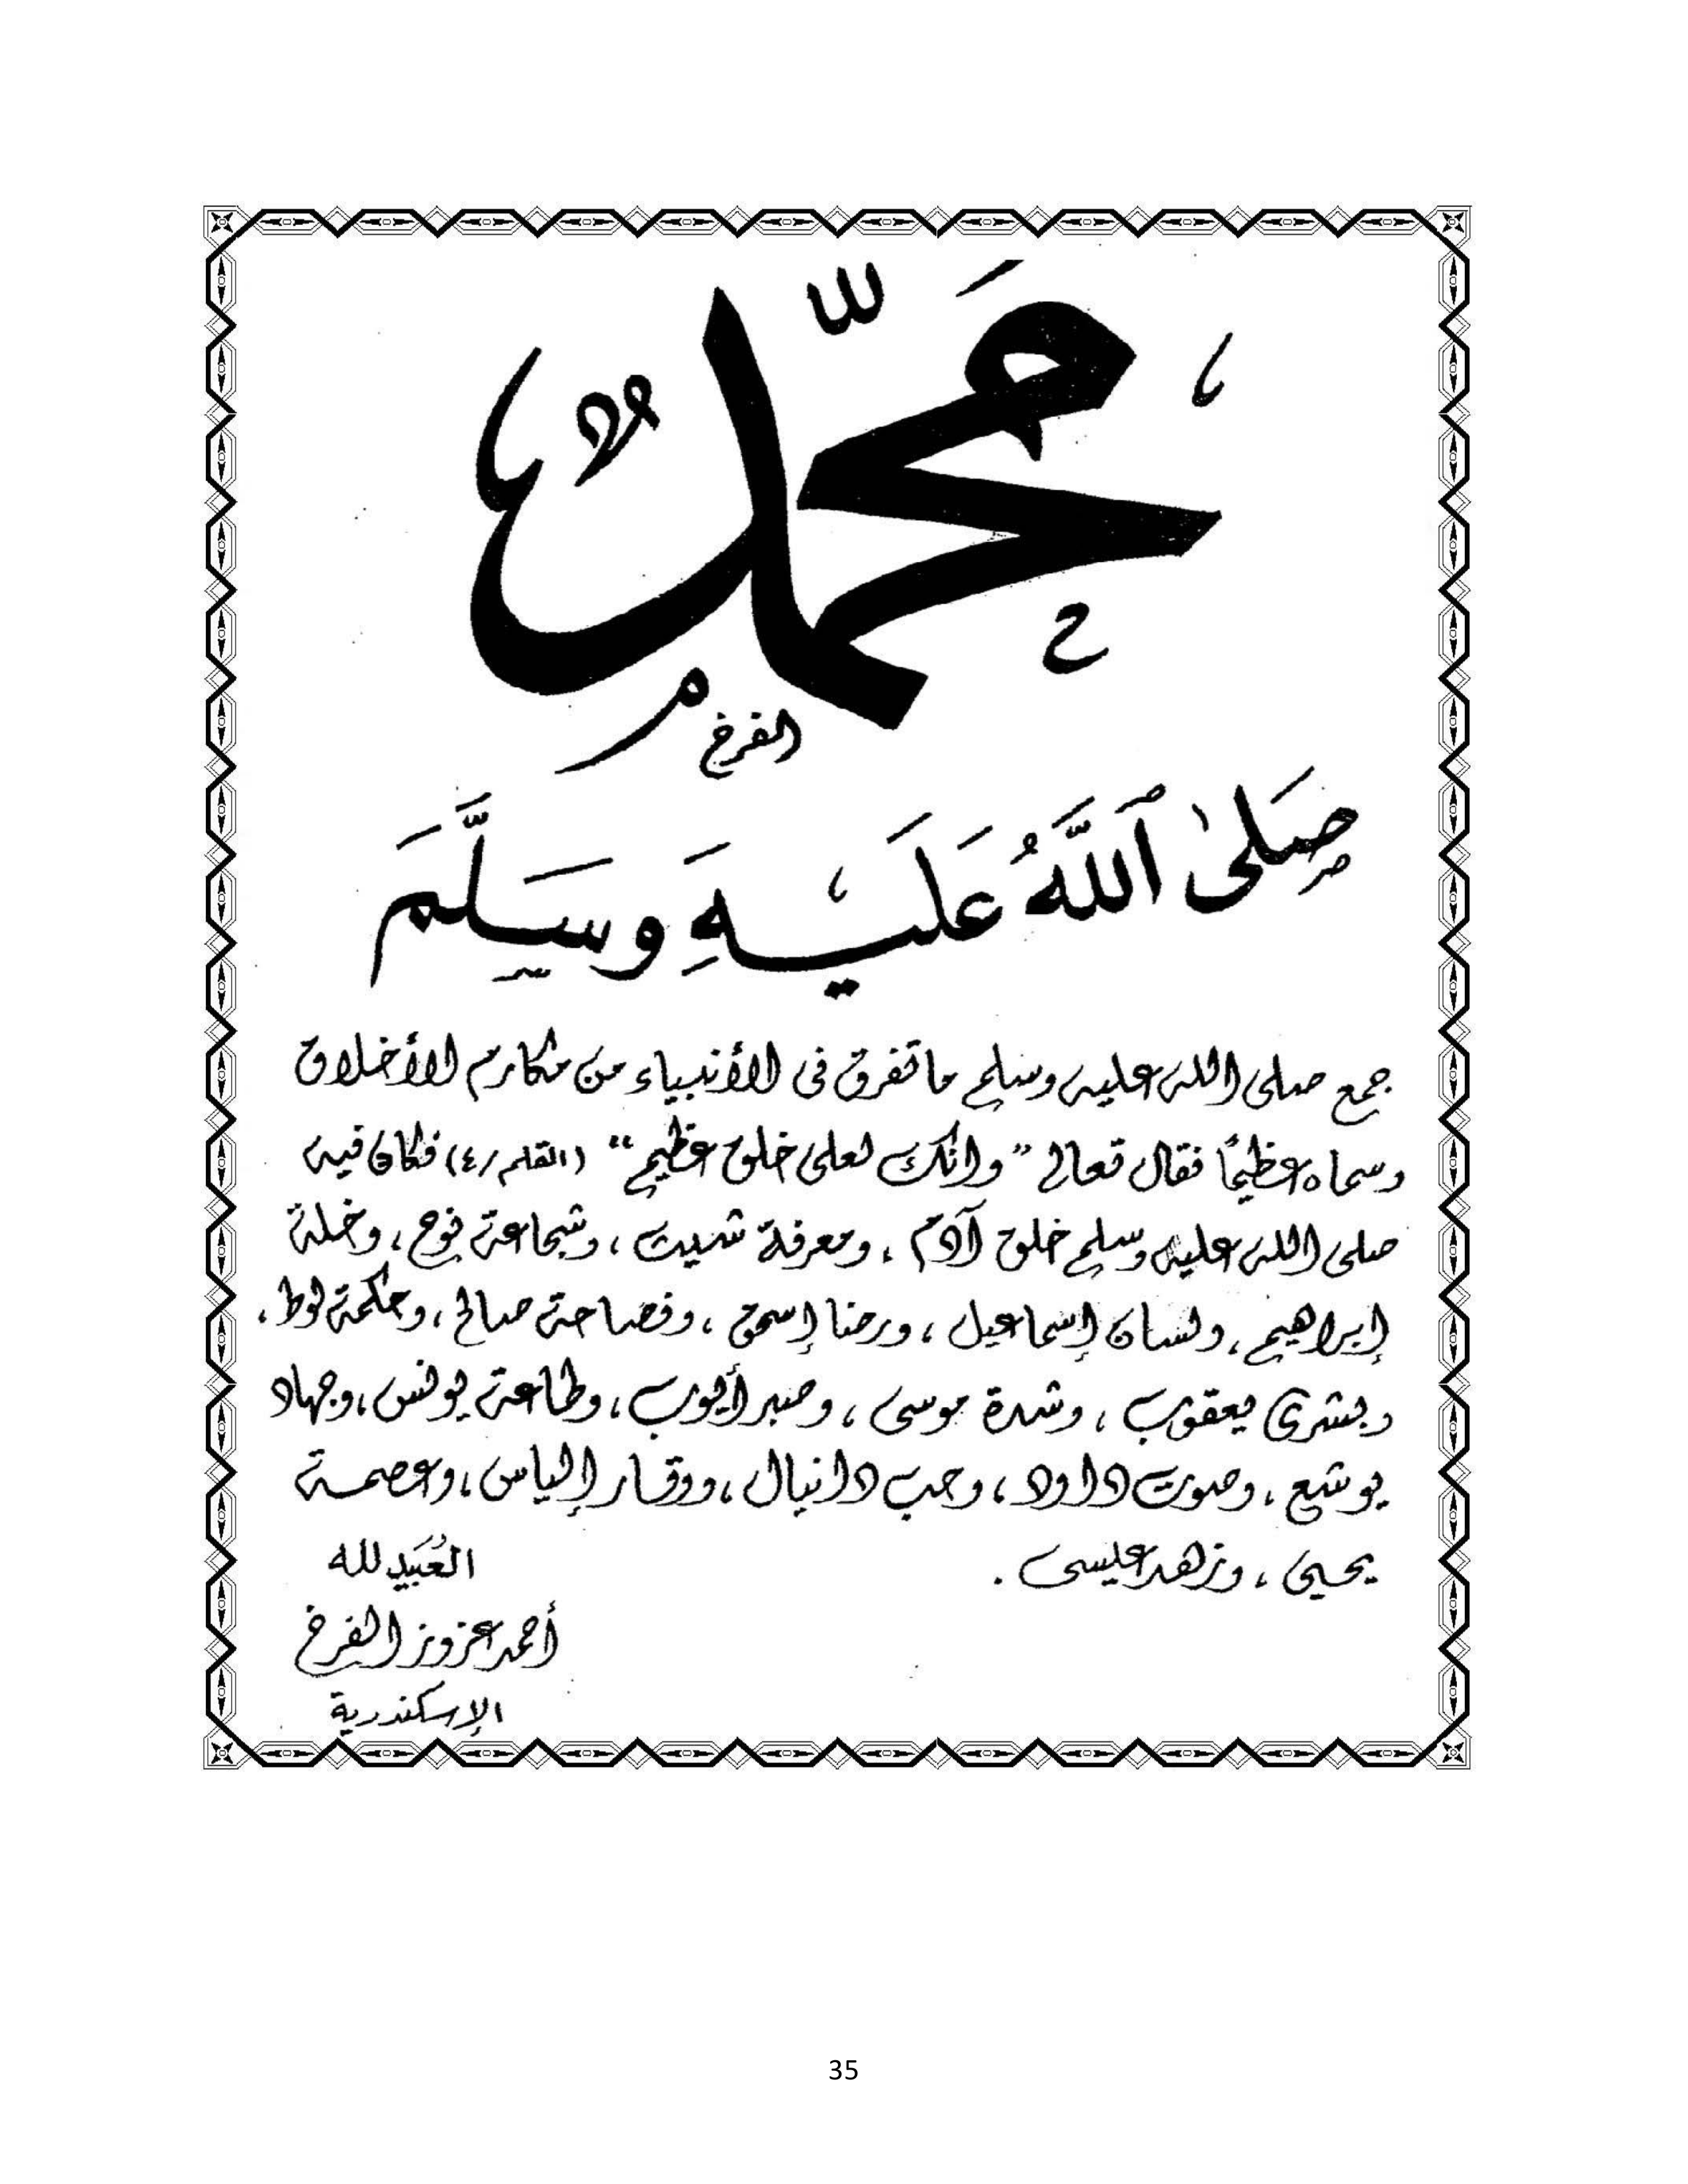 مُحَمَّدٌ
الفرخ
صَلَّىٰ ٱللَّهُ عَلَيْهِ وَسَلَّمَ
جمع صلى الله عليه وسلم ما تفرق فى الأنبياء من مكارم الأخلاق
وسماه عظيمًا فقال تعالى "وانك لعلى خلق عظيم" (القلم/٤) فكان فيه
صلى الله عليه وسلم خلق آدم ، ومعرفة شيث ، وشجاعة نوح ، وخلة
إبراهيم ، ولسان إسماعيل ، ورضا إسحق ، وفصاحة صالح ، وحكمة لوط ،
وبشرى يعقوب ، وشدة موسى ، وصبر أيوب ، وطاعة يونس ، وجهاد
يوشع ، وصوت داود ، وحب دانيال ، ووقار إلياس ، وعصمة
يحيى ، وزهد عيسى .
العُبَيد لله
أحمد عزوز الفرخ
الإسكندرية
35